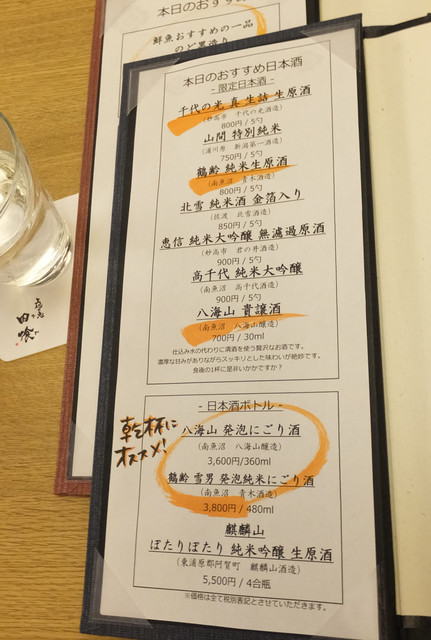 本日のおすすめ
鮮魚おすすめの一品
のど黒造り
本日のおすすめ日本酒
- 限定日本酒 -
千代の光 真 生詰 生原酒
(妙高市 千代の光酒造)
800円 / 5勺
山間 特別純米
(浦川原 新潟第一酒造)
750円 / 5勺
鶴齢 純米生原酒
(南魚沼 青木酒造)
800円 / 5勺
北雪 純米酒 金箔入り
(佐渡 北雪酒造)
850円 / 5勺
恵信 純米大吟醸 無濾過原酒
(妙高市 君の井酒造)
900円 / 5勺
高千代 純米大吟醸
(南魚沼 高千代酒造)
900円 / 5勺
八海山 貴譲酒
(南魚沼 八海山醸造)
700円 / 30ml
仕込み水の代わりに清酒を使う贅沢なお酒です。
濃厚な甘みがありながらスッキリとした味わいが絶妙です。
食後の1杯に是非いかかですか?
乾杯に
オススメ!
- 日本酒ボトル -
八海山 発泡にごり酒
(南魚沼 八海山醸造)
3,600円/360ml
鶴齢 雪男 発泡純米にごり酒
(南魚沼 青木酒造)
3,800円 / 480ml
麒麟山
ぽたりぽたり 純米吟醸 生原酒
(東蒲原郡阿賀町 麒麟山酒造)
5,500円 / 4合瓶
※価格は全て税別表記とさせていただきます。
田喰